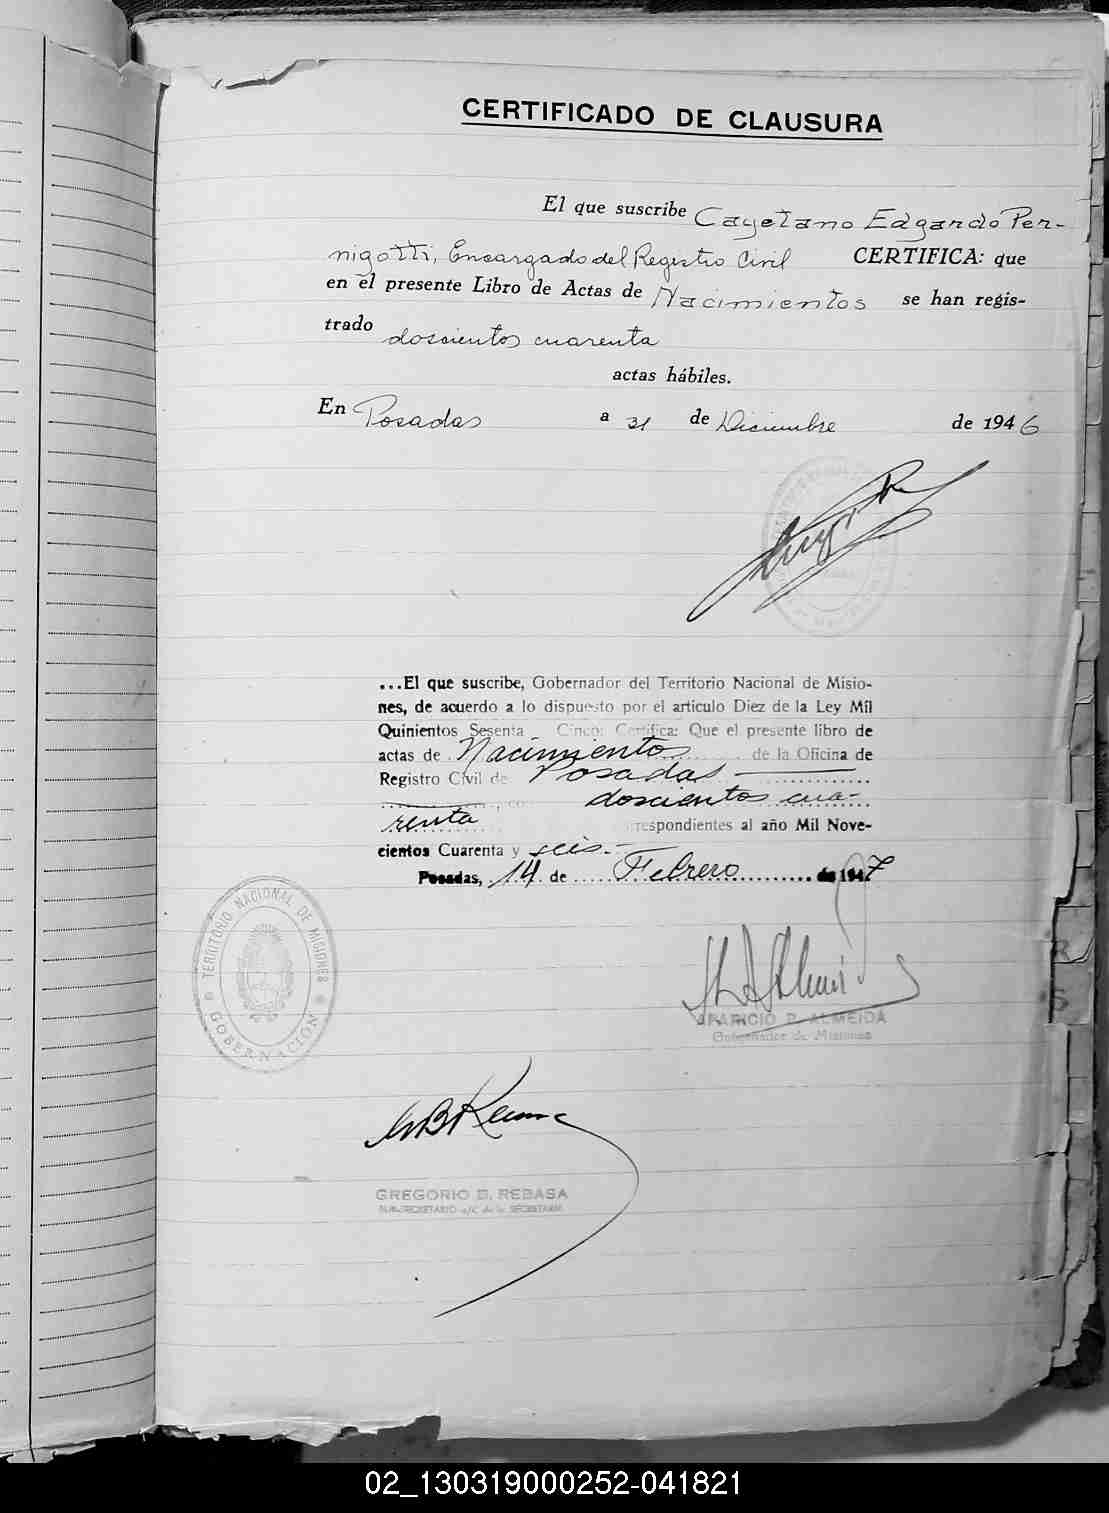 CERTIFICADO DE CLAUSURA
El que suscribe Cayetano Edgardo Per-
nigotti, Encargado del Registro Civil CERTIFICA: que
en el presente Libro de Actas de Nacimientos se han regis-
trado doscientos cuarenta
actas hábiles.
En Posadas a 31 de Diciembre de 1946
...El que suscribe, Gobernador del Territorio Nacional de Misio-
nes, de acuerdo a lo dispuesto por el artículo Diez de la Ley Mil
Quinientos Sesenta Cinco: Certifica: Que el presente libro de
actas de Nacimientos de la Oficina de
Registro Civil de Posadas
doscientos cua-
renta respondientes al año Mil Nove-
cientos Cuarenta y seis.-
Posadas, 14 de Febrero de 1947
TERRITORIO NACIONAL DE MISIONES
GOBERNACIÓN
APARICIO P. ALMEIDA
Gobernador de Misiones
GREGORIO B. REBASA
SUB-SECRETARIO a/c de la SECRETARIA
02_130319000252-041821